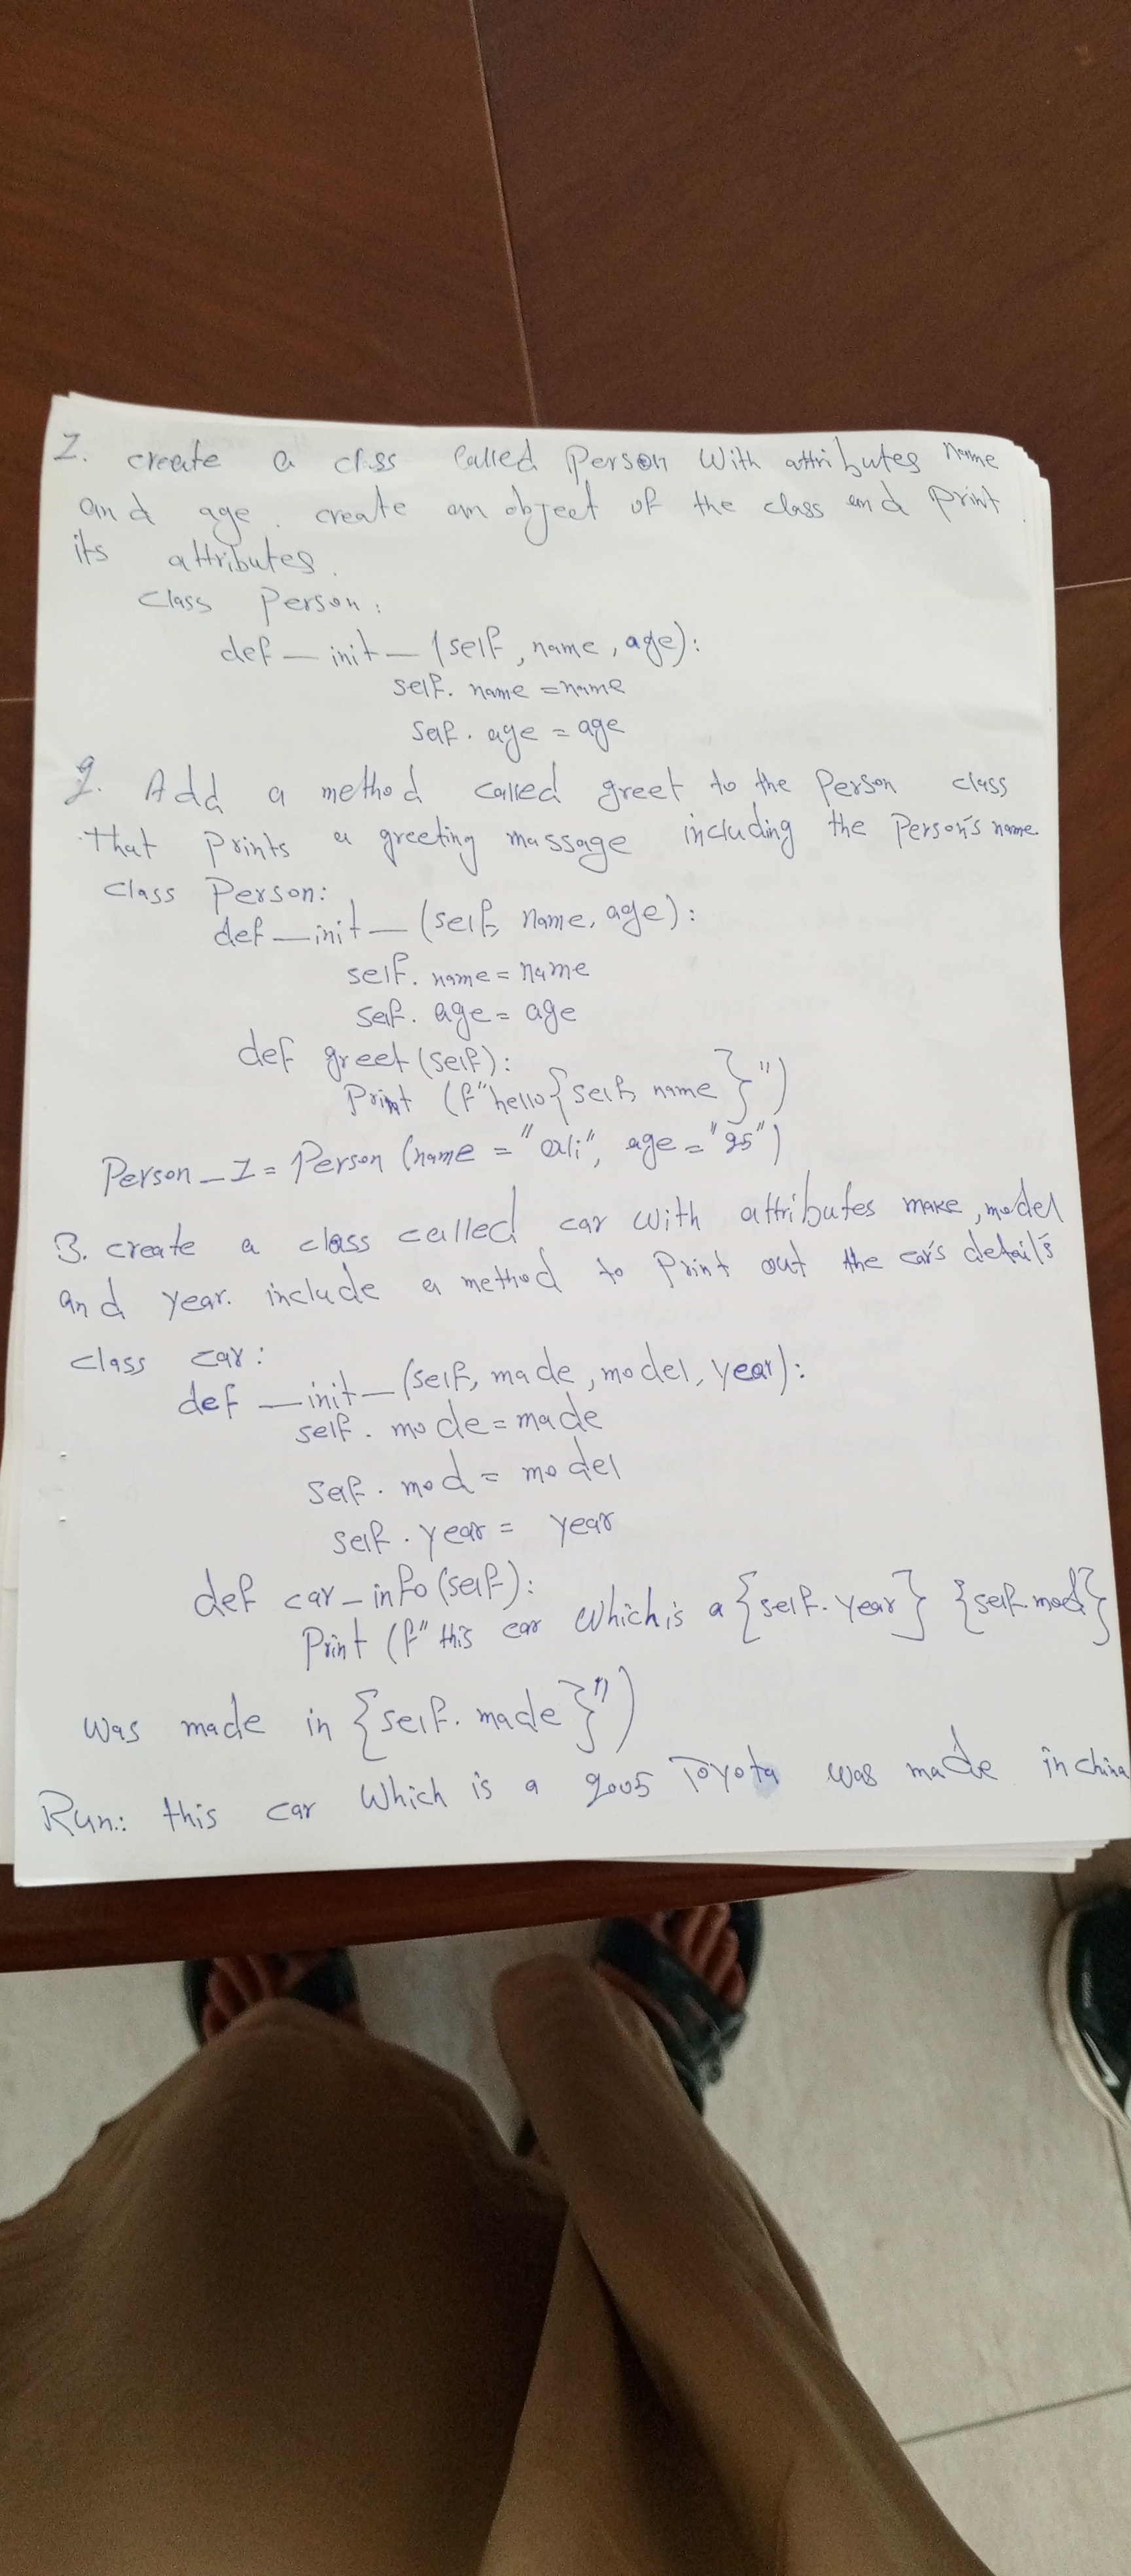 1. create a clss called Person With attributes name
and age. create an object of the class and print
its attributes.
class Person:
def __init__ (self, name, age):
self. name = name
self. age = age
2. Add a method called greet to the Person class
that prints a greeting massage including the Person's name
class Person:
def __init__ (self, name, age):
self. name = name
self. age = age
def greet (self):
Print (f"hello {self. name}")
Person_1 = Person (name = "ali", age = "25")
3. create a class called car with attributes make, model
and year. include a method to Print out the car's detail's
class car:
def __init__ (self, made, model, year):
self. made = made
self. mod = model
self. year = year
def car_info (self):
Print (f" this car which is a {self. year} {self. mod}
was made in {self. made}")
Run: this car which is a 2005 Toyota was made in china